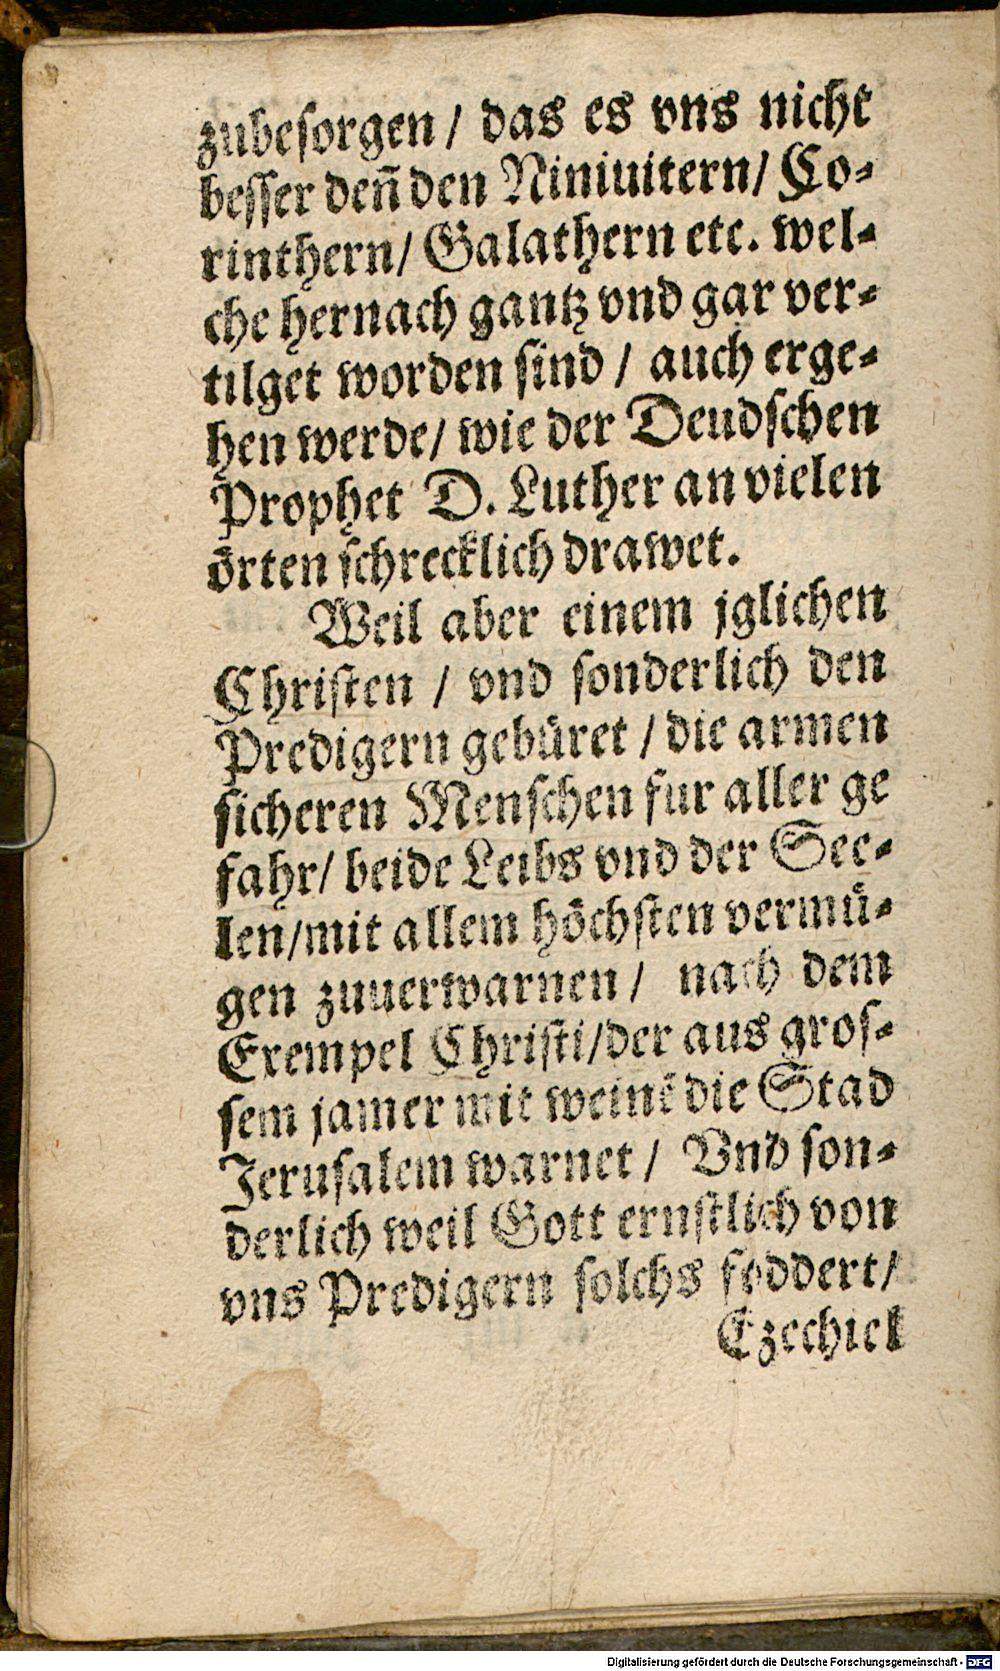 zubeſorgen / das es vns nicht
beſſer deñ den Niniuitern / Co⸗
rinthern / Galathern etc. wel⸗
che hernach gantz vnd gar ver⸗
tilget worden ſind / auch erge⸗
hen werde / wie der Deudſchen
Prophet D. Luther an vielen
örten ſchrecklich drawet.
Weil aber einem jglichen
Chriſten / vnd ſonderlich den
Predigern gebüret / die armen
ſicheren Menſchen fur aller ge
fahr / beide Leibs vnd der See⸗
len / mit allem höchſten vermü⸗
gen zuuerwarnen / nach dem
Exempel Chriſti / der aus groſ⸗
ſem jamer mit weinē die Stad
Jeruſalem warnet / Vnd ſon⸗
derlich weil Gott ernſtlich von
vns Predigern ſolchs foddert /
Ezechiel
Digitalisierung gefördert durch die Deutsche Forschungsgemeinschaft - DFG